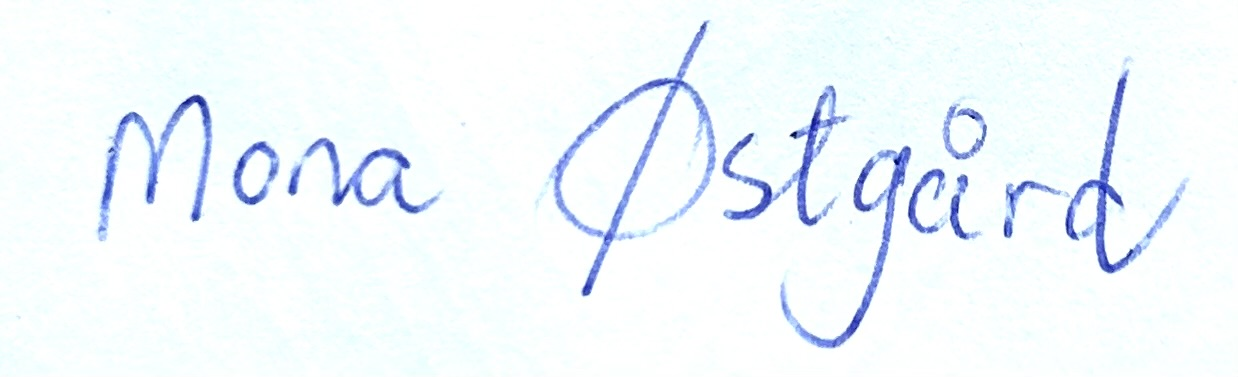 Mona Østgård